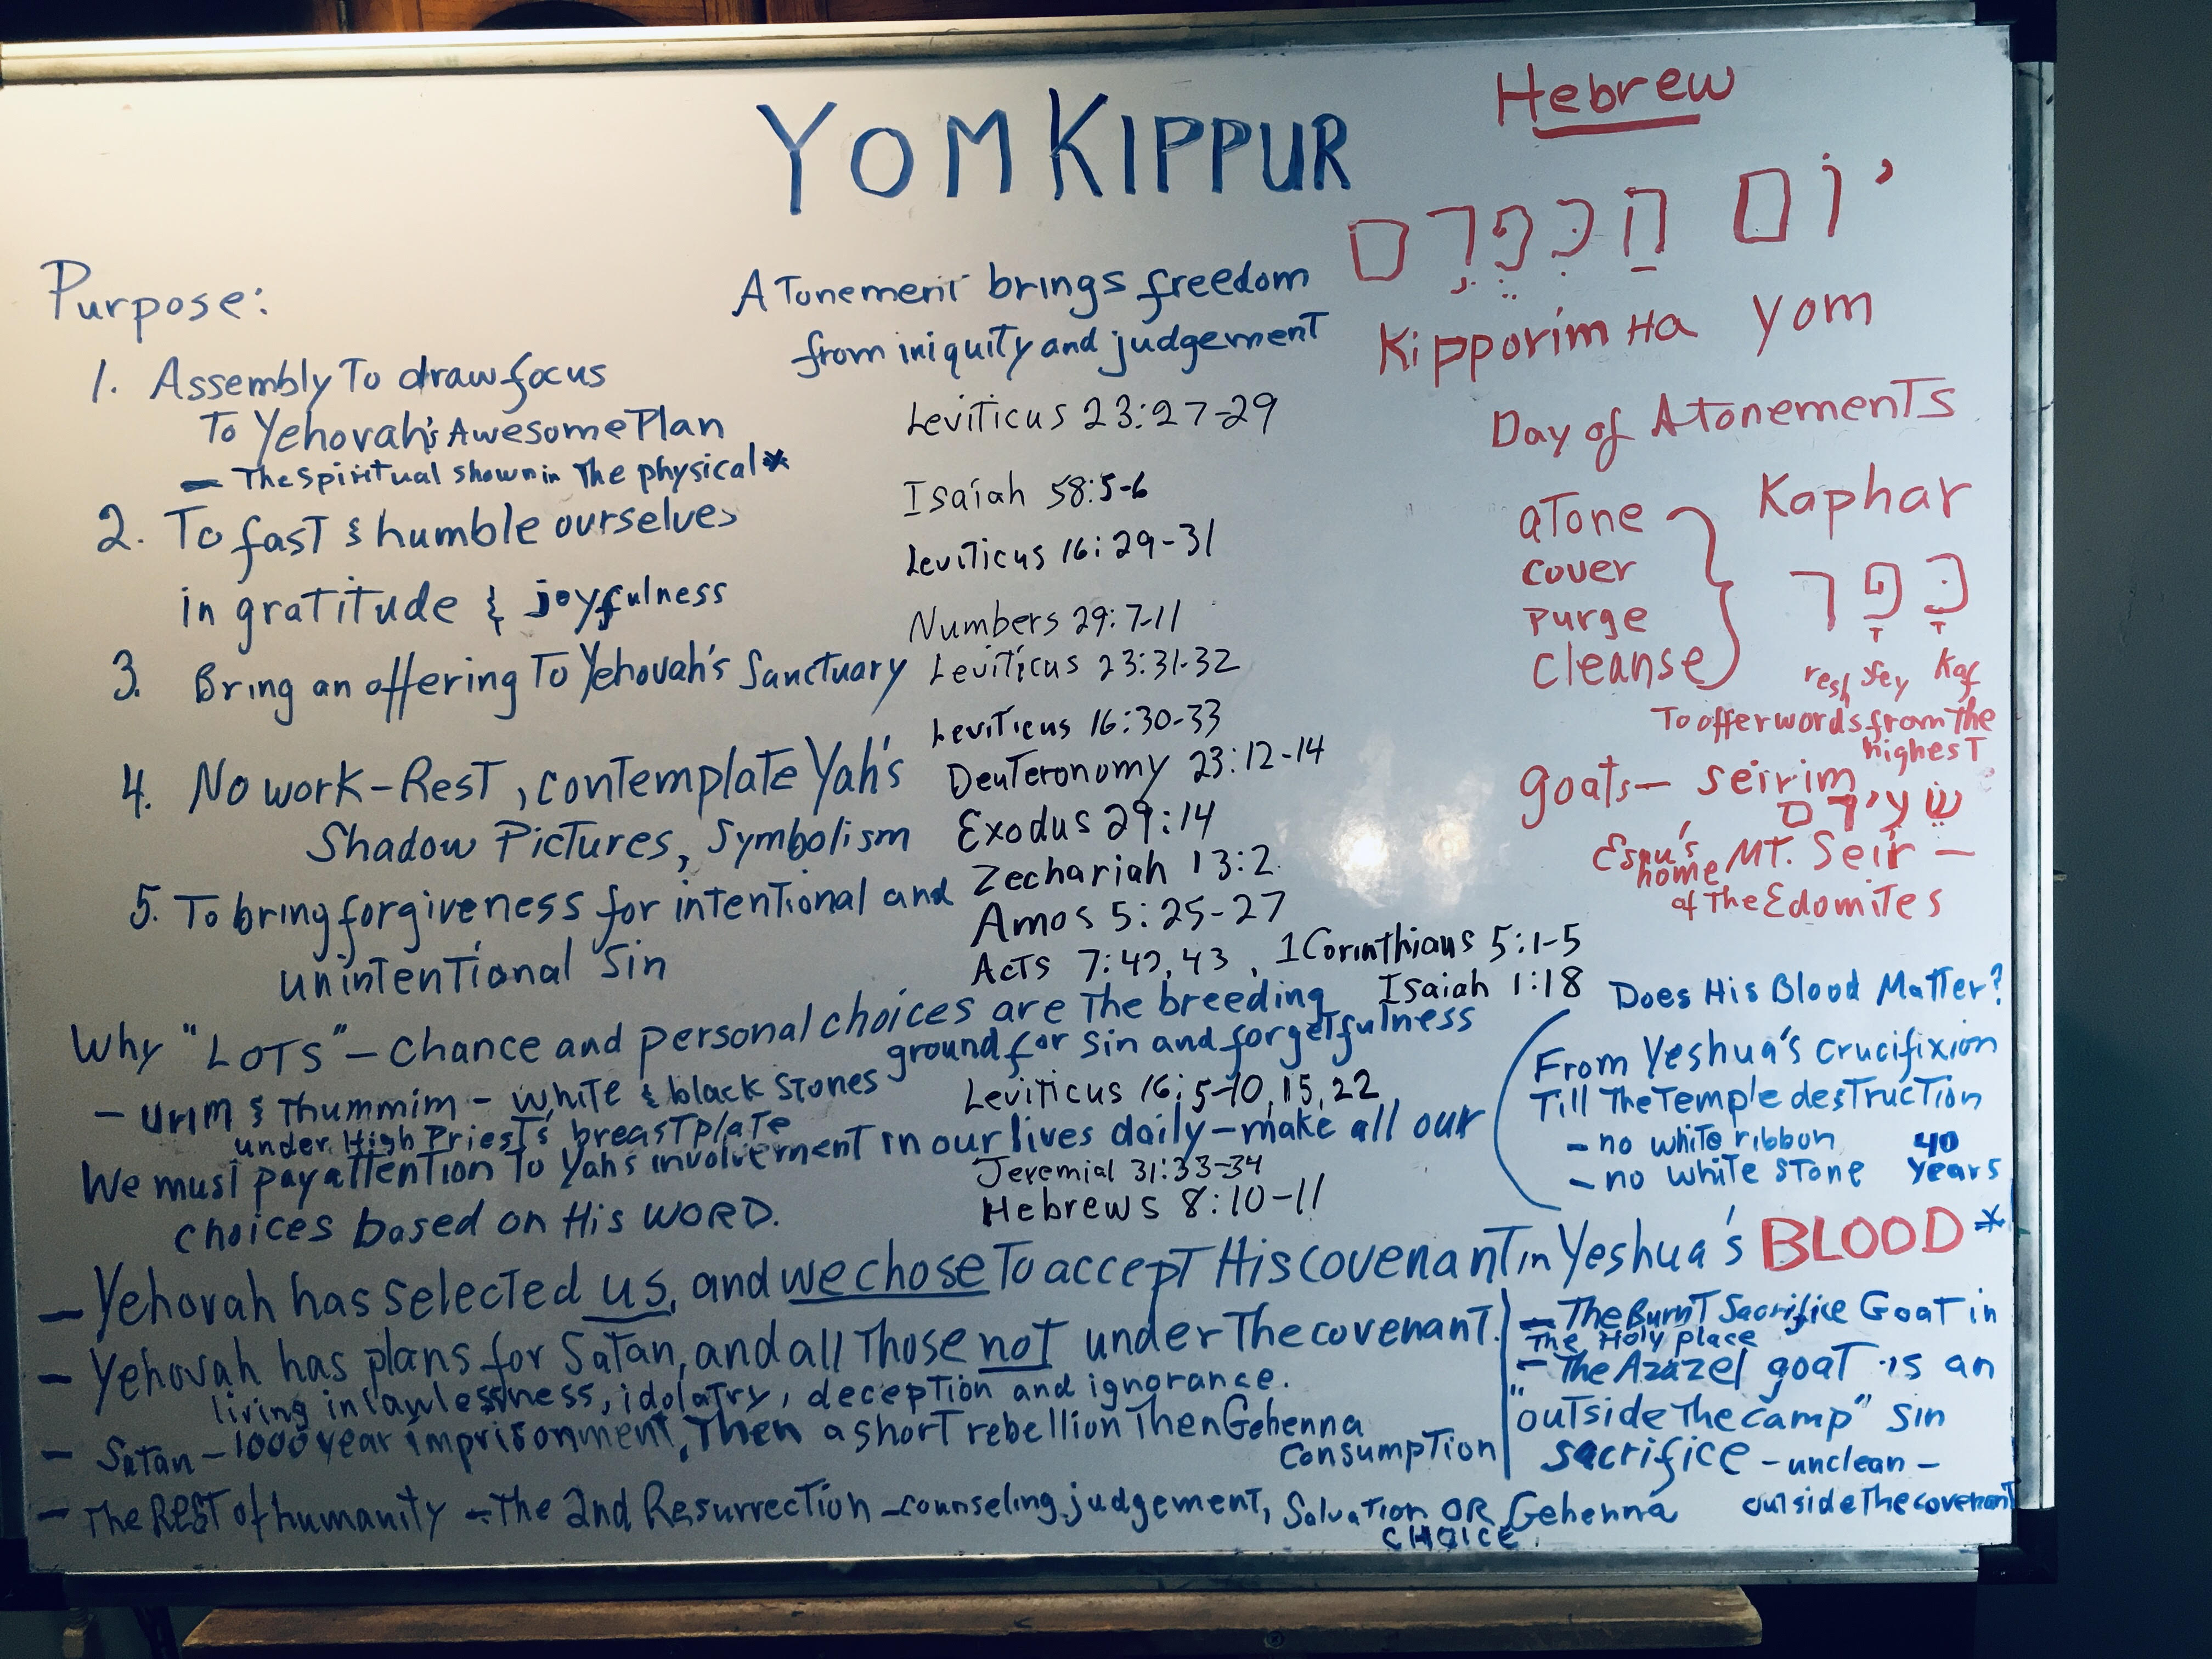 YOM KIPPUR
Purpose:
1. Assembly To draw focus
To Yehovah's Awesome Plan
– The Spiritual shown in The physical *
2. To fast & humble ourselves
in gratitude & joyfulness
3. Bring an offering To Yehovah's Sanctuary
4. No work-Rest, contemplate Yah's
Shadow Pictures, Symbolism
5. To bring forgiveness for intentional and
unintentional Sin
Atonement brings freedom
from iniquity and judgement
Leviticus 23:27-29
Isaiah 58:5-6
Leviticus 16:29-31
Numbers 29:7-11
Leviticus 23:31-32
Leviticus 16:30-33
Deuteronomy 23:12-14
Exodus 29:14
Zechariah 13:2
Amos 5:25-27
Acts 7:42,43, 1 Corinthians 5:1-5
Isaiah 1:18
Hebrew
יוֹם הַכִּפֻּרִם
Kipporim Ha Yom
Day of Atonements
Kaphar
atone
cover
purge
cleanse
כָּפָר
resh fey Kaf
To offer words from the
highest
goats – seirim
שעירם
Esau's home MT. Seir –
of the Edomites
Why "LOTS" – Chance and personal choices are the breeding
ground for sin and forgetfulness
– Urim & Thummim – white & black stones
under High Priest's breastplate
Leviticus 16:5-10,15,22
We must pay attention to Yah's involvement in our lives daily – make all our
choices based on His WORD.
Jeremial 31:33-34
Hebrews 8:10-11
Does His Blood Matter?
From Yeshua's crucifixion
Till The Temple destruction
– no white ribbon
– no white stone
40
years
– Yehovah has selected us, and we chose To accept His covenant in Yeshua's BLOOD *
– Yehovah has plans for Satan, and all Those not under The covenant.
living in lawlessness, idolatry, deception and ignorance.
– Satan – 1000 year imprisonment, Then a short rebellion Then Gehenna
Consumption
– The REST of humanity – The 2nd Resurrection – counseling, judgement, Salvation OR Gehenna
CHOICE
– The Burnt Sacrifice Goat in
The Holy place
– The Azazel goat is an
"outside The camp" sin
sacrifice – unclean –
outside The covenant